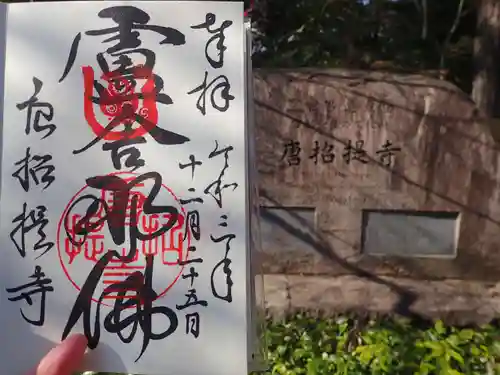 奉拝
令和三年
十二月二十五日
盧舎那佛
唐招提寺
唐招提寺